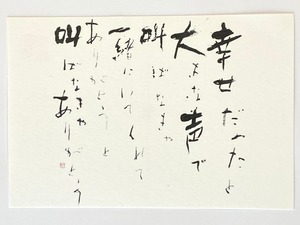 幸せだったと
大きな声で
叫ばなきゃ
一緒にいてくれて
ありがとうと
叫ばなきゃ ありがとう